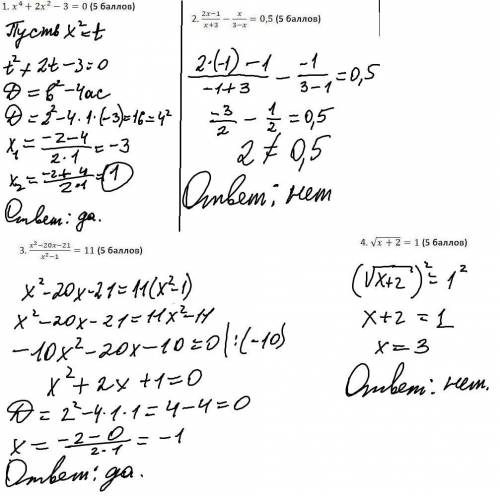 1. x⁴ + 2x² − 3 = 0 (5 баллов)
Пусть x² = t
t² + 2t − 3 = 0
D = b² − 4ac
D = 2² − 4·1·(−3) = 16 = 4²
x₁ = (−2−4)/(2·1) = −3
x₂ = (−2+4)/(2·1) = 1
Ответ: да.
2. (2x−1)/(x+3) − x/(3−x) = 0,5 (5 баллов)
(2·(−1)−1)/(−1+3) − (−1)/(3−1) = 0,5
(−3)/2 − 1/2 = 0,5
2 ≠ 0,5
Ответ: нет
3. (x²−20x−21)/(x²−1) = 11 (5 баллов)
x² − 20x − 21 = 11(x² − 1)
x² − 20x − 21 = 11x² − 11
−10x² − 20x − 10 = 0 | : (−10)
x² + 2x + 1 = 0
D = 2² − 4·1·1 = 4 − 4 = 0
x = (−2−0)/(2·1) = −1
Ответ: да.
4. √(x + 2) = 1 (5 баллов)
(√(x+2))² = 1²
x + 2 = 1
x = 3
Ответ: нет.